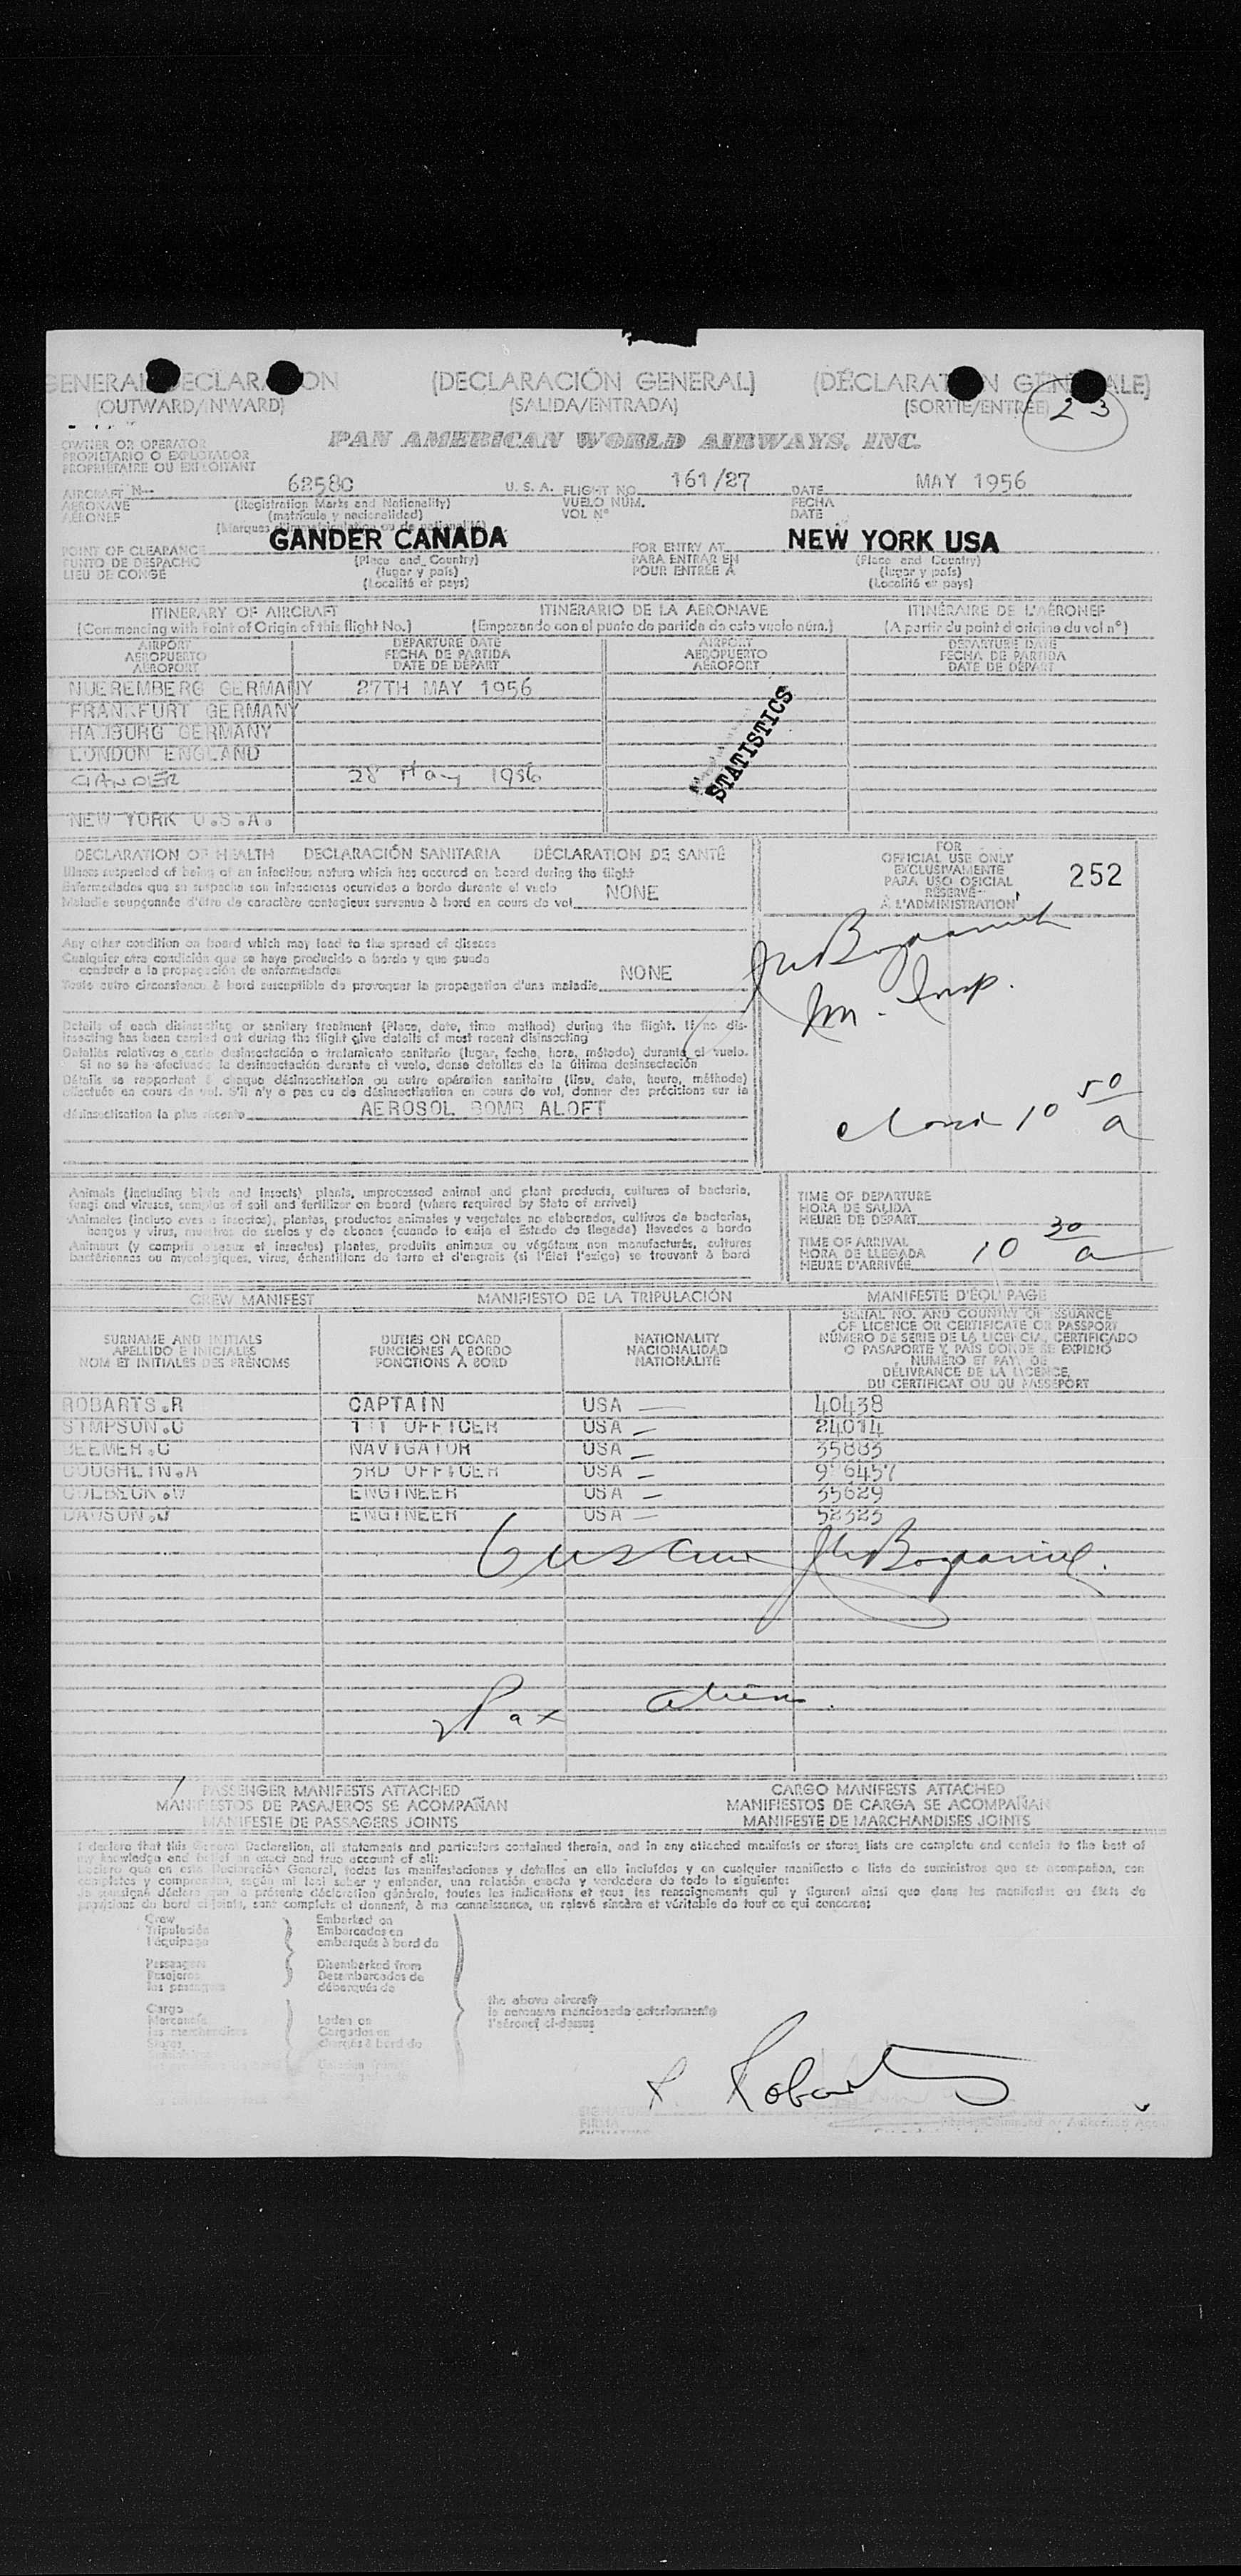 GENERAL DECLARATION (DECLARACIÓN GENERAL) (DÉCLARATION GENERALE)
(OUTWARD/INWARD) (SALIDA/ENTRADA) (SORTIE/ENTRÉE) 23
OWNER OR OPERATOR
PROPIETARIO O EXPLOTADOR
PROPRIÉTAIRE OU EXPLOITANT
PAN AMERICAN WORLD AIRWAYS, INC.
AIRCRAFT N 62580 U. S. A. FLIGHT NO. 161/27 DATE MAY 1956
AERONAVE (Registration Marks and Nationality) VUELO NUM. FECHA
AÉRONEF (matrícula y nacionalidad) VOL Nº DATE
(Marques d'immatriculation ou de nationalité)
POINT OF CLEARANCE GANDER CANADA FOR ENTRY AT NEW YORK USA
PUNTO DE DESPACHO (Place and Country) PARA ENTRAR EN (Place and Country)
LIEU DE CONGÉ (lugar y país) POUR ENTRÉE À (lugar y país)
(Localité et pays) (Localité et pays)
ITINERARY OF AIRCRAFT ITINERARIO DE LA AERONAVE ITINÉRAIRE DE L'AÉRONEF
(Commencing with Point of Origin of this flight No.) (Empezando con el punto de partida de este vuelo núm.) (A partir du point d'origine du vol nº)
AIRPORT DEPARTURE DATE AIRPORT DEPARTURE DATE
AEROPUERTO FECHA DE PARTIDA AEROPUERTO FECHA DE PARTIDA
AÉROPORT DATE DE DÉPART AÉROPORT DATE DE DÉPART
NUEREMBERG GERMANY 27TH MAY 1956
FRANKFURT GERMANY
HAMBURG GERMANY
LONDON ENGLAND
GANDER 28 May 1956
STATISTICS
NEW YORK U.S.A.
DECLARATION OF HEALTH DECLARACIÓN SANITARIA DÉCLARATION DE SANTÉ
Illness suspected of being of an infectious nature which has occured on board during the flight
Enfermedades que se sospecha son infecciosas ocurridas a bordo durante el vuelo
Maladie soupçonnée d'être de caractère contagieux survenue à bord en cours de vol NONE
FOR
OFFICIAL USE ONLY
EXCLUSIVAMENTE
PARA USO OFICIAL
RÉSERVÉ
À L'ADMINISTRATION
252
Any other condition on board which may lead to the spread of disease
Cualquier otra condición que se haya producido a bordo y que pueda
conducir a la propagación de enfermedades
Toute autre circonstance à bord susceptible de provoquer la propagation d'une maladie NONE
Im. Insp.
Details of each disinsecting or sanitary treatment (Place, date, time method) during the flight. If no dis-
insecting has been carried out during the flight give details of most recent disinsecting
Detalles relativos a cada desinsectación o tratamiento sanitario (lugar, fecha, hora, método) durante el vuelo.
Si no se ha efectuado la desinsectación durante el vuelo, dense detalles de la última desinsectación
Détails se rapportant à chaque désinsectisation ou autre opération sanitaire (lieu, date, heure, méthode)
effectuée en cours de vol. S'il n'y a pas eu de désinsectisation en cours de vol, donner des précisions sur la
désinsectisation la plus récente AEROSOL BOMB ALOFT
10 50 a
Animals (including birds and insects), plants, unprocessed animal and plant products, cultures of bacteria,
fungi and viruses, samples of soil and fertilizer on board (where required by State of arrival)
Animales (incluso aves e insectos), plantas, productos animales y vegetales no elaborados, cultivos de bacterias,
hongos y virus, muestras de suelos y de abonos (cuando lo exija el Estado de llegada) llevados a bordo
Animaux (y compris oiseaux et insectes) plantes, produits animaux ou végétaux non manufacturés, cultures
bactériennes ou mycologiques, virus, échantillons de terre et d'engrais (si l'État l'exige) se trouvant à bord
TIME OF DEPARTURE
HORA DE SALIDA
HEURE DE DÉPART
TIME OF ARRIVAL
HORA DE LLEGADA
HEURE D'ARRIVÉE 10 30 a
CREW MANIFEST MANIFIESTO DE LA TRIPULACIÓN MANIFESTE D'ÉQUIPAGE
SURNAME AND INITIALS
APELLIDO E INICIALES
NOM ET INITIALES DES PRÉNOMS
DUTIES ON BOARD
FUNCIONES A BORDO
FONCTIONS À BORD
NATIONALITY
NACIONALIDAD
NATIONALITÉ
SERIAL NO. AND COUNTRY OF ISSUANCE
OF LICENCE OR CERTIFICATE OR PASSPORT
NÚMERO DE SERIE DE LA LICENCIA, CERTIFICADO
O PASAPORTE Y PAÍS DONDE SE EXPIDIÓ
NUMÉRO ET PAYS DE
DÉLIVRANCE DE LA LICENCE,
DU CERTIFICAT OU DU PASSEPORT
ROBARTS.R CAPTAIN USA 40438
SIMPSON.C 1ST OFFICER USA 24014
BEEMER.C NAVIGATOR USA 35883
COUGHLIN.A 3RD OFFICER USA
COLBECK.W ENGINEER USA 35629
DAWSON.J ENGINEER USA 52323
6 us Crew
Pax aliens.
PASSENGER MANIFESTS ATTACHED CARGO MANIFESTS ATTACHED
MANIFIESTOS DE PASAJEROS SE ACOMPAÑAN MANIFIESTOS DE CARGA SE ACOMPAÑAN
MANIFESTE DE PASSAGERS JOINTS MANIFESTE DE MARCHANDISES JOINTS
I declare that this General Declaration, all statements and particulars contained therein, and in any attached manifests or stores lists are complete and contain to the best of
my knowledge and belief an exact and true account of all:
Declaro que en esta Declaración General, todas las manifestaciones y detalles en ella incluídos y en cualquier manifiesto o lista de suministros que se acompañan, son
completos y comprenden, según mi leal saber y entender, una relación exacta y verdadera de todo lo siguiente:
Je soussigné déclare que la présente déclaration générale, toutes les indications et tous les renseignements qui y figurent ainsi que dans les manifestes ou états de
provisions de bord ci-joints, sont complets et donnent, à ma connaissance, un relevé sincère et véritable de tout ce qui concerne:
Crew
Tripulación
l'équipage
Passengers
Pasajeros
les passagers
Cargo
Mercancía
les marchandises
Stores
Embarked on
Embarcados en
embarqués à bord de
Disembarked from
Desembarcados de
débarqués de
Laden on
Cargados en
chargés à bord de
the above aircraft
la aeronave mencionada anteriormente
l'aéronef ci-dessus
R. Robarts
SIGNATURE
FIRMA